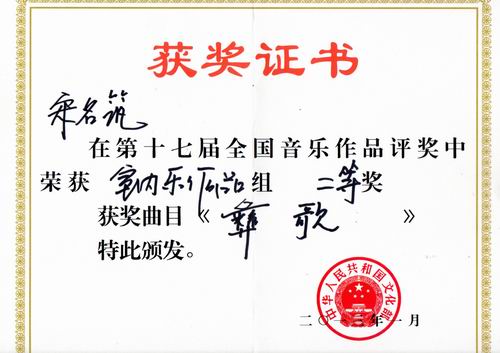 获奖证书
宋名筑
在第十七届全国音乐作品评奖中
荣获 室内乐作品组 二等奖
获奖曲目《彝歌》
特此颁发。
中华人民共和国文化部
二〇一三年一月